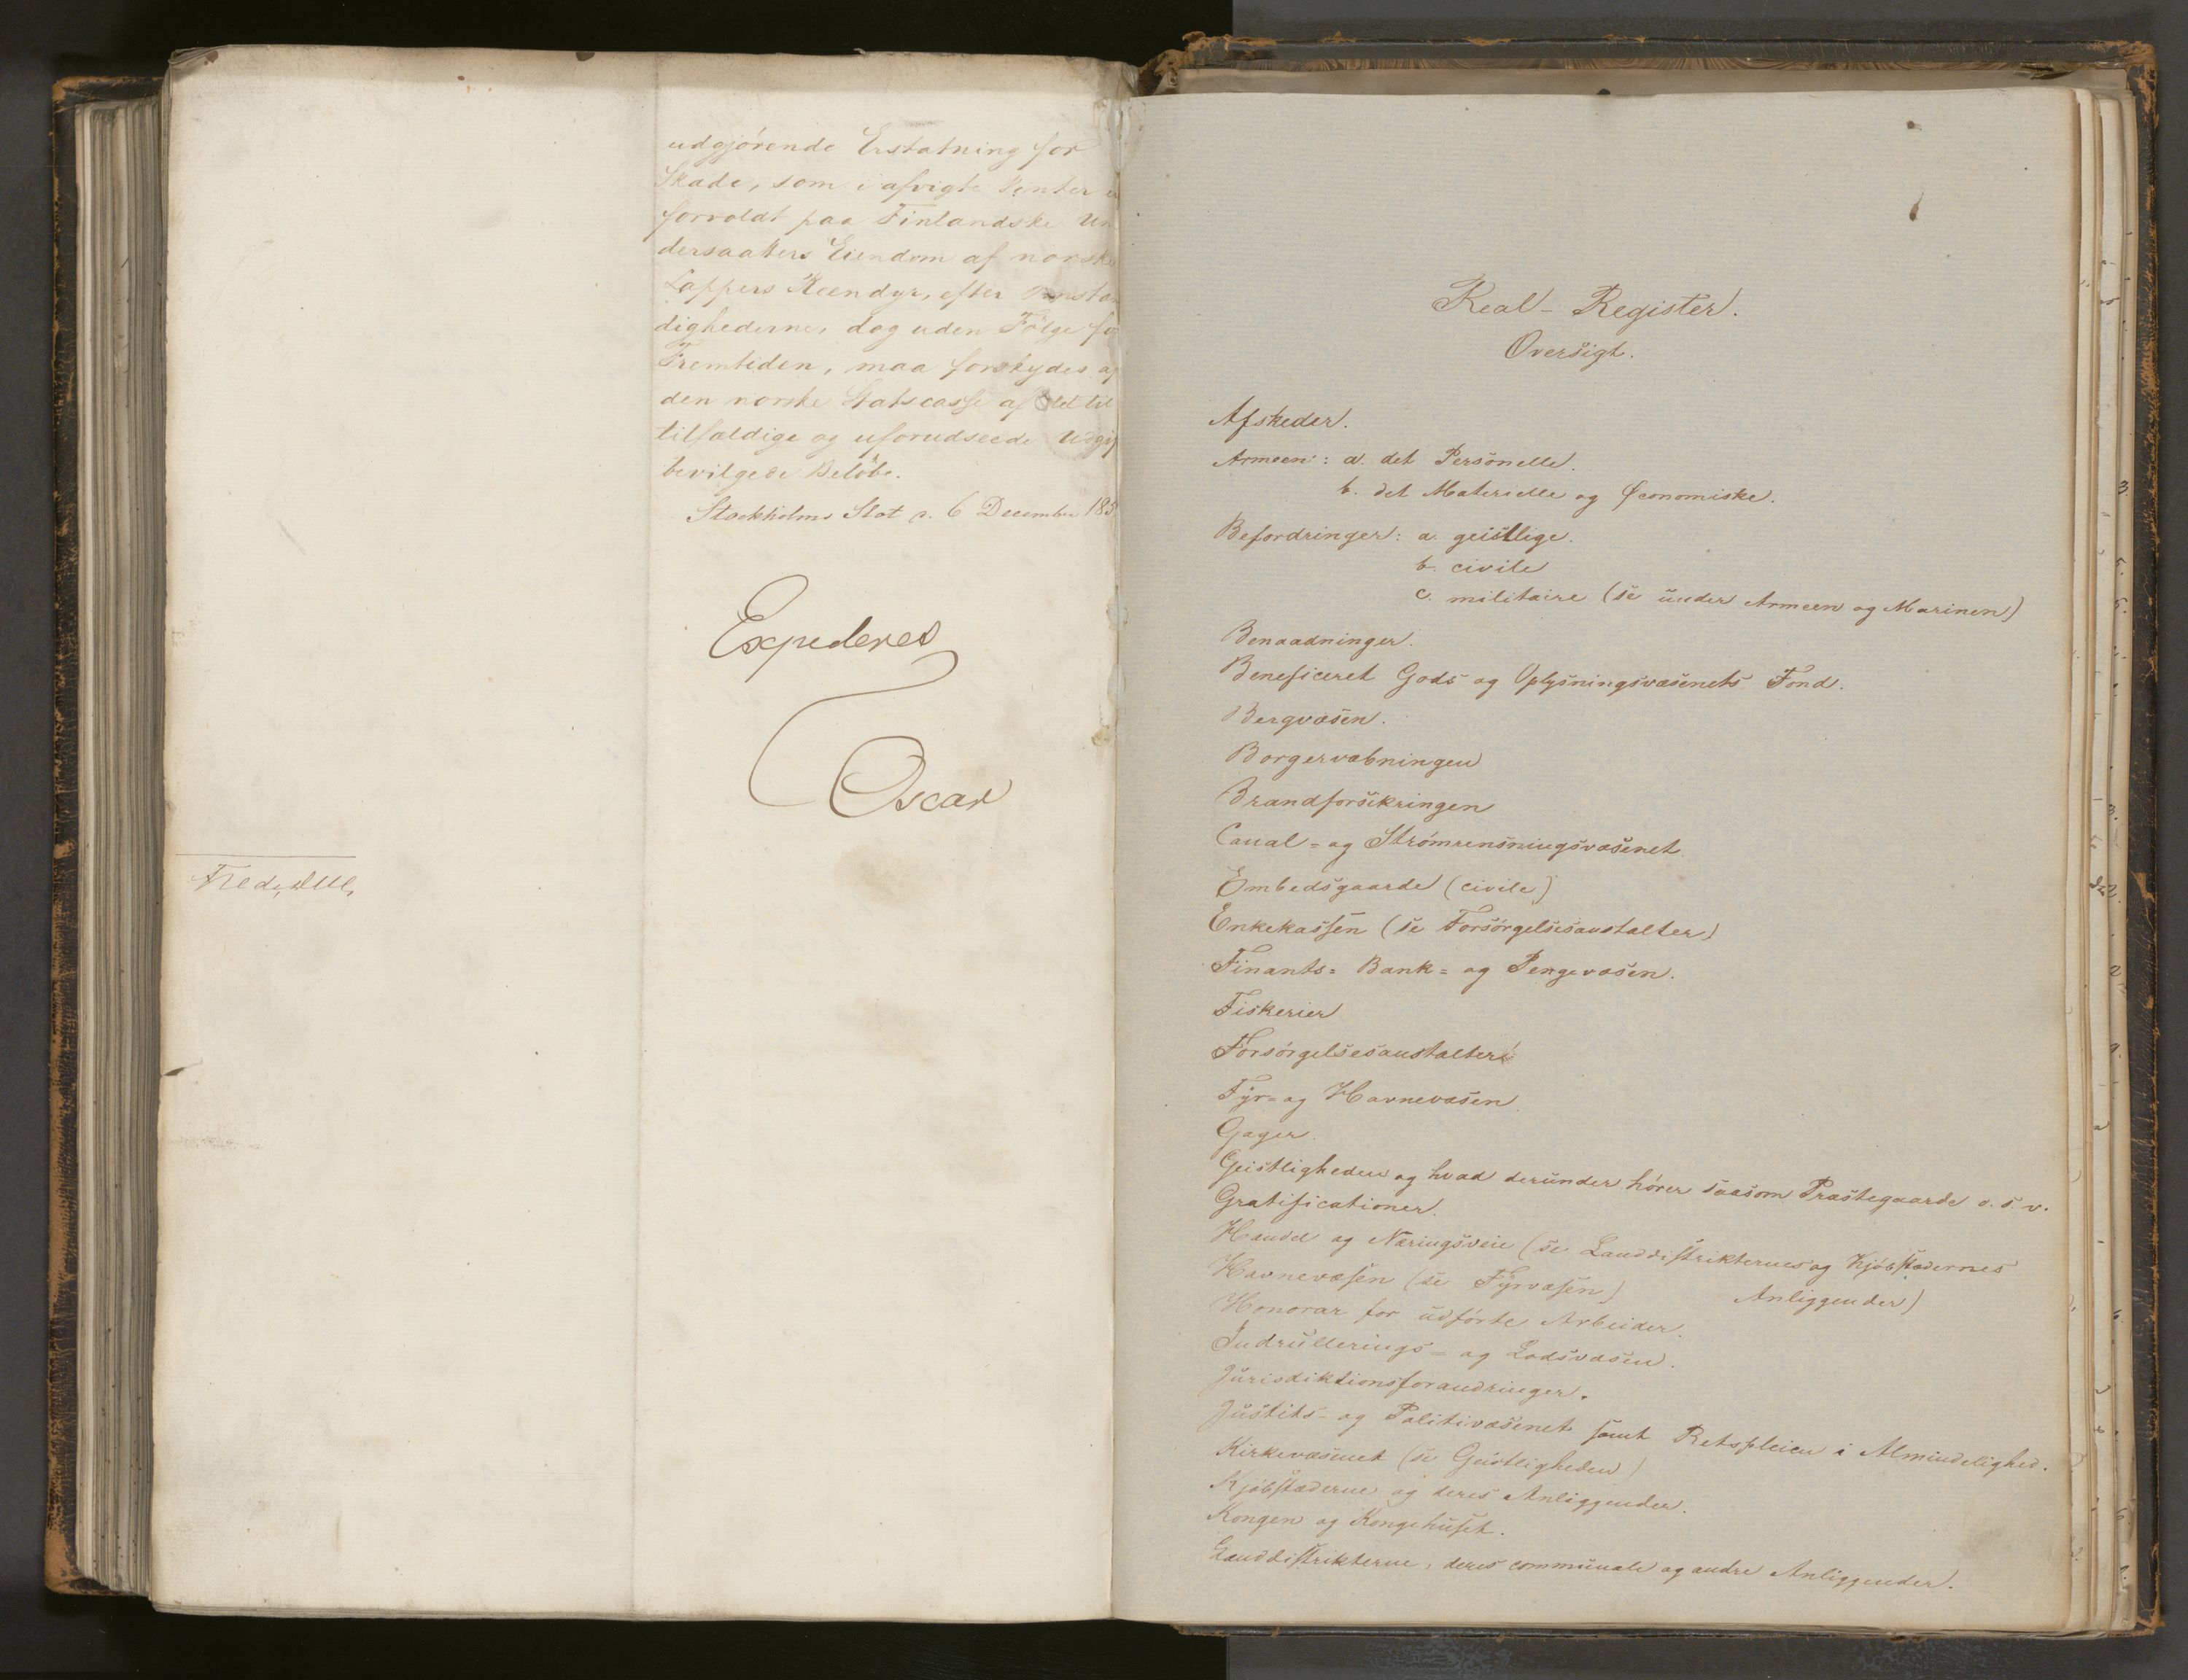 udgjörende Erstatning for
Skade, som i afvigte Vinter
forvoldt paa Finlandske Un
dersaatters Eiendom af norske
Lappers Reendyr, efter Omstæn
dighederne, dog uden Fölge for
Fremtiden, maa forskydes af
den norske Statscasse af det til
tilfældige og uforudseede Udgif
bevilgede Beløb.
Stockholms Slot d. 6 December 185
Expederes
Oscar
Real-Register.
Oversigt.
Afskeder.
Armeen: a. det Personelle.
b. det Materielle og Oeconomiske.
Befordringer: a. geistlige.
b. civile
c. militaire (se under Armeen og Marinen)
Benaadninger.
Beneficeret Gods og Oplysningsvæsenets Fond.
Bergvæsen.
Borgervæbningen
Brandforsikringen
Canal- og Strømrensningsvæsenet
Embedsgaarde (civile)
Enkekassen (se Forsørgelsesanstalter)
Finants- Bank- og Pengevæsen.
Fiskerier
Forsørgelsesanstalter
Fyr- og Havnevæsen
Gager.
Geistligheden og hvad derunder hører saasom Præstegaarde o. s. v.
Gratificationer.
Handel og Næringsveie (se Landdistrikternes og Kjøbstædernes
Anliggender)
Havnevæsen (se Fyrvæsen)
Honorar for udførte Arbeider.
Indrullerings- og Lodsvæsen.
Jurisdiktionsforandringer.
Justits- og Politivæsenet samt Retspleien i Almindelighed.
Kirkevæsenet (se Geistligheden)
Kjøbstæderne og deres Anliggender.
Kongen og Kongehuset.
Landdistrikterne, deres communale og andre Anliggender.